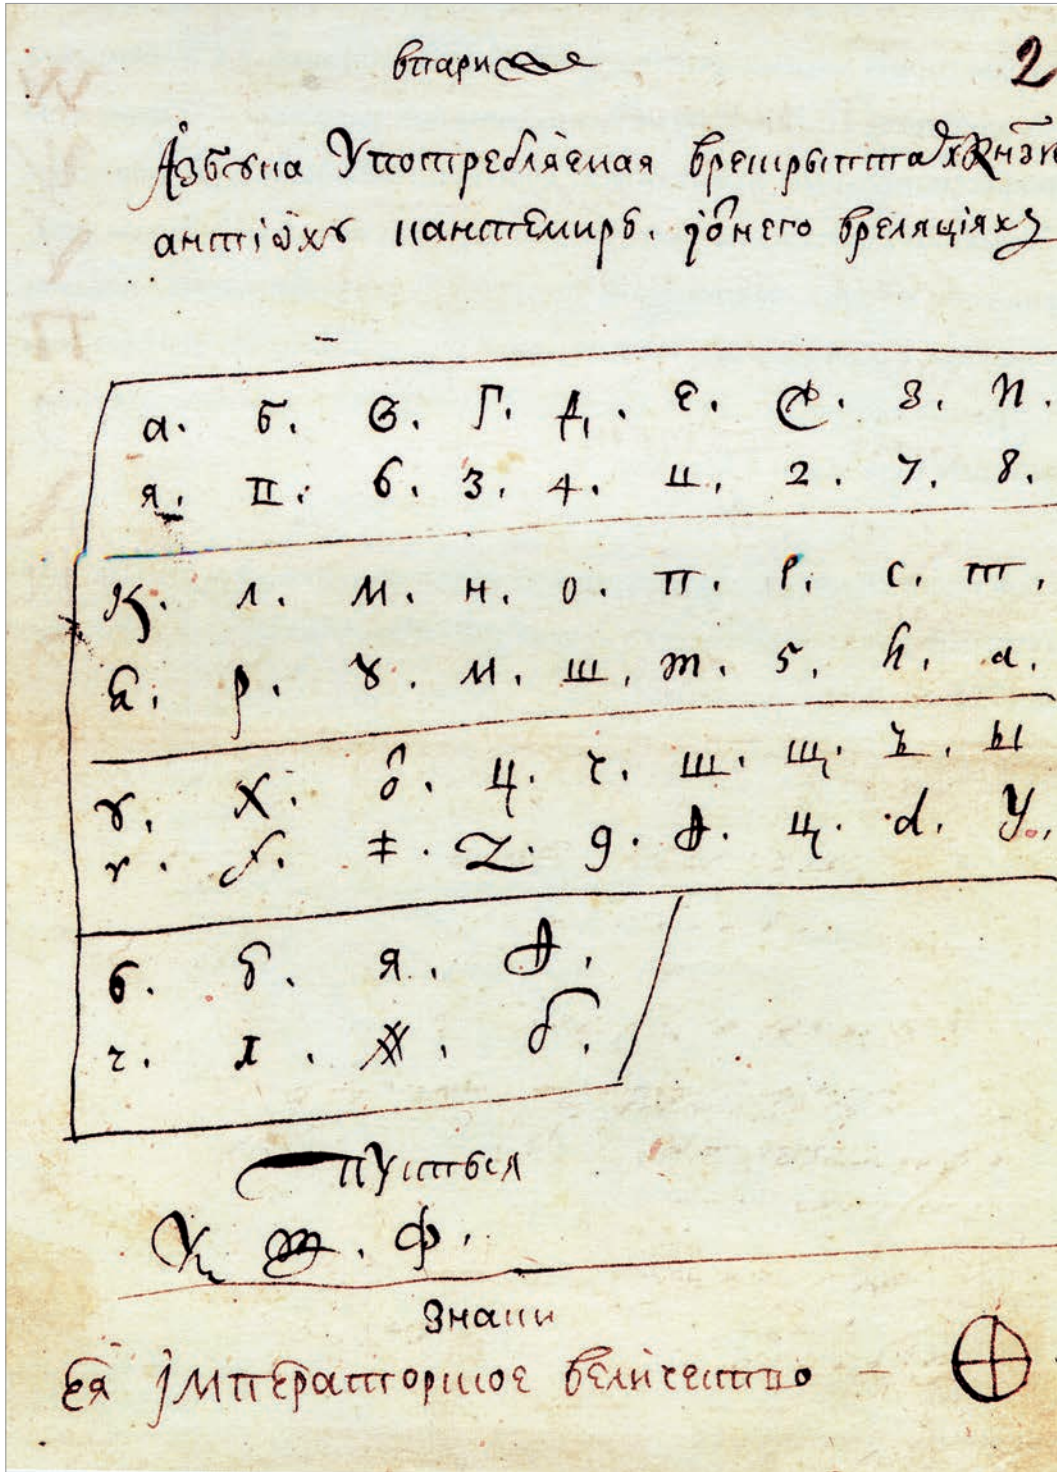 впариж
2
Азбука Употребляемая врескрыптах кнзю
антіоху кантемиру. і ѿнего вреляціяхъ
а. б. в. г. д. е. ж. з. и.
я. п. б. 3. 4. ц. 2. 7. 8.
к. л. м. н. о. п. р. с. т.
р. ꙋ. м. ш. т. 5. h. а.
ꙋ. х. ѿ. ц. ч. ш. щ. ъ. ы
г. ‡. Z. 9. ц. d. У.
ь. ѣ. я.
ч. I. б.
пустыя
ф.
знаки
ея імператорское величество —